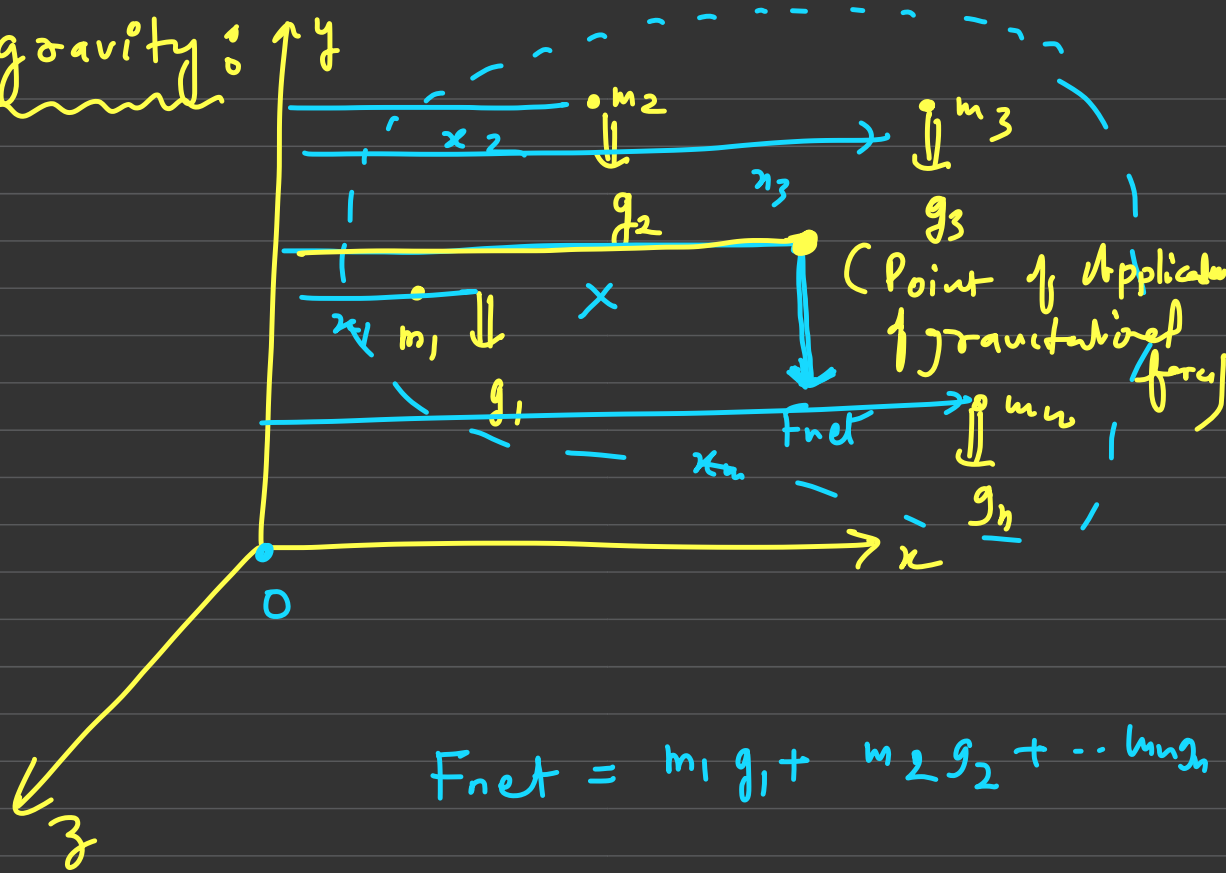 gravity :
y
m2
m3
x2
x3
g2
g3
(Point of Application
X
x1
m1
of gravitational
force)
g1
mn
Fnet
xn
gn
x
O
Fnet = m1 g1 + m2 g2 + ... mngn
z